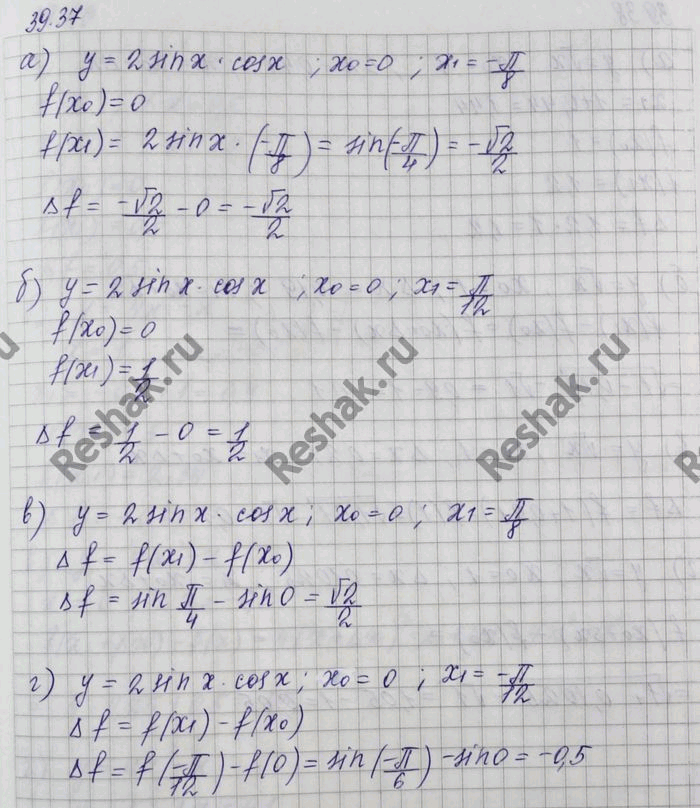 39.37
а) y = 2 sin x · cos x ; x₀ = 0 ; x₁ = -π/8
f(x₀) = 0
f(x₁) = 2 sin x · (-π/8) = sin(-π/4) = -√2/2
Δf = -√2/2 - 0 = -√2/2
б) y = 2 sin x · cos x ; x₀ = 0 ; x₁ = π/12
f(x₀) = 0
f(x₁) = 1/2
Δf = 1/2 - 0 = 1/2
в) y = 2 sin x · cos x ; x₀ = 0 ; x₁ = π/8
Δf = f(x₁) - f(x₀)
Δf = sin π/4 - sin 0 = √2/2
г) y = 2 sin x · cos x ; x₀ = 0 ; x₁ = -π/12
Δf = f(x₁) - f(x₀)
Δf = f(-π/12) - f(0) = sin(-π/6) - sin 0 = -0,5
Reshak.ru
Reshak.ru
Reshak.ru